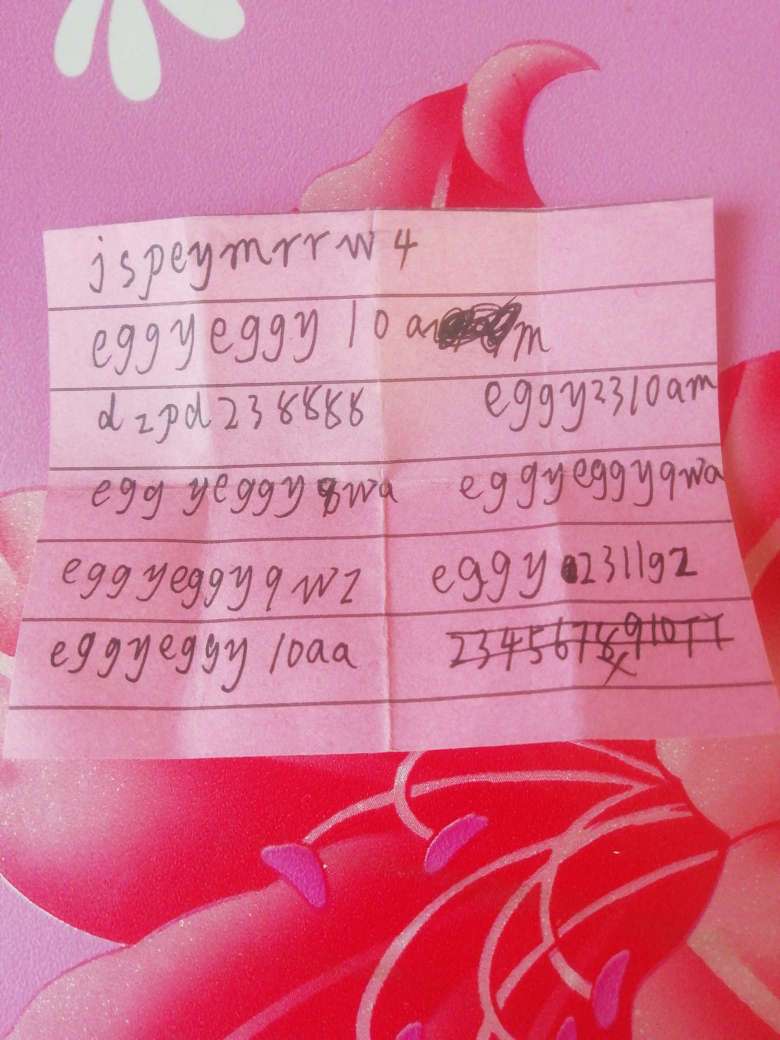 jspeymrrw4
eggyeggy10am
dzpd238888 eggy2310am
eggyeggy8wa eggyeggy9wa
eggyeggy9wz eggy2311gz
eggyeggy10aa 234567891011